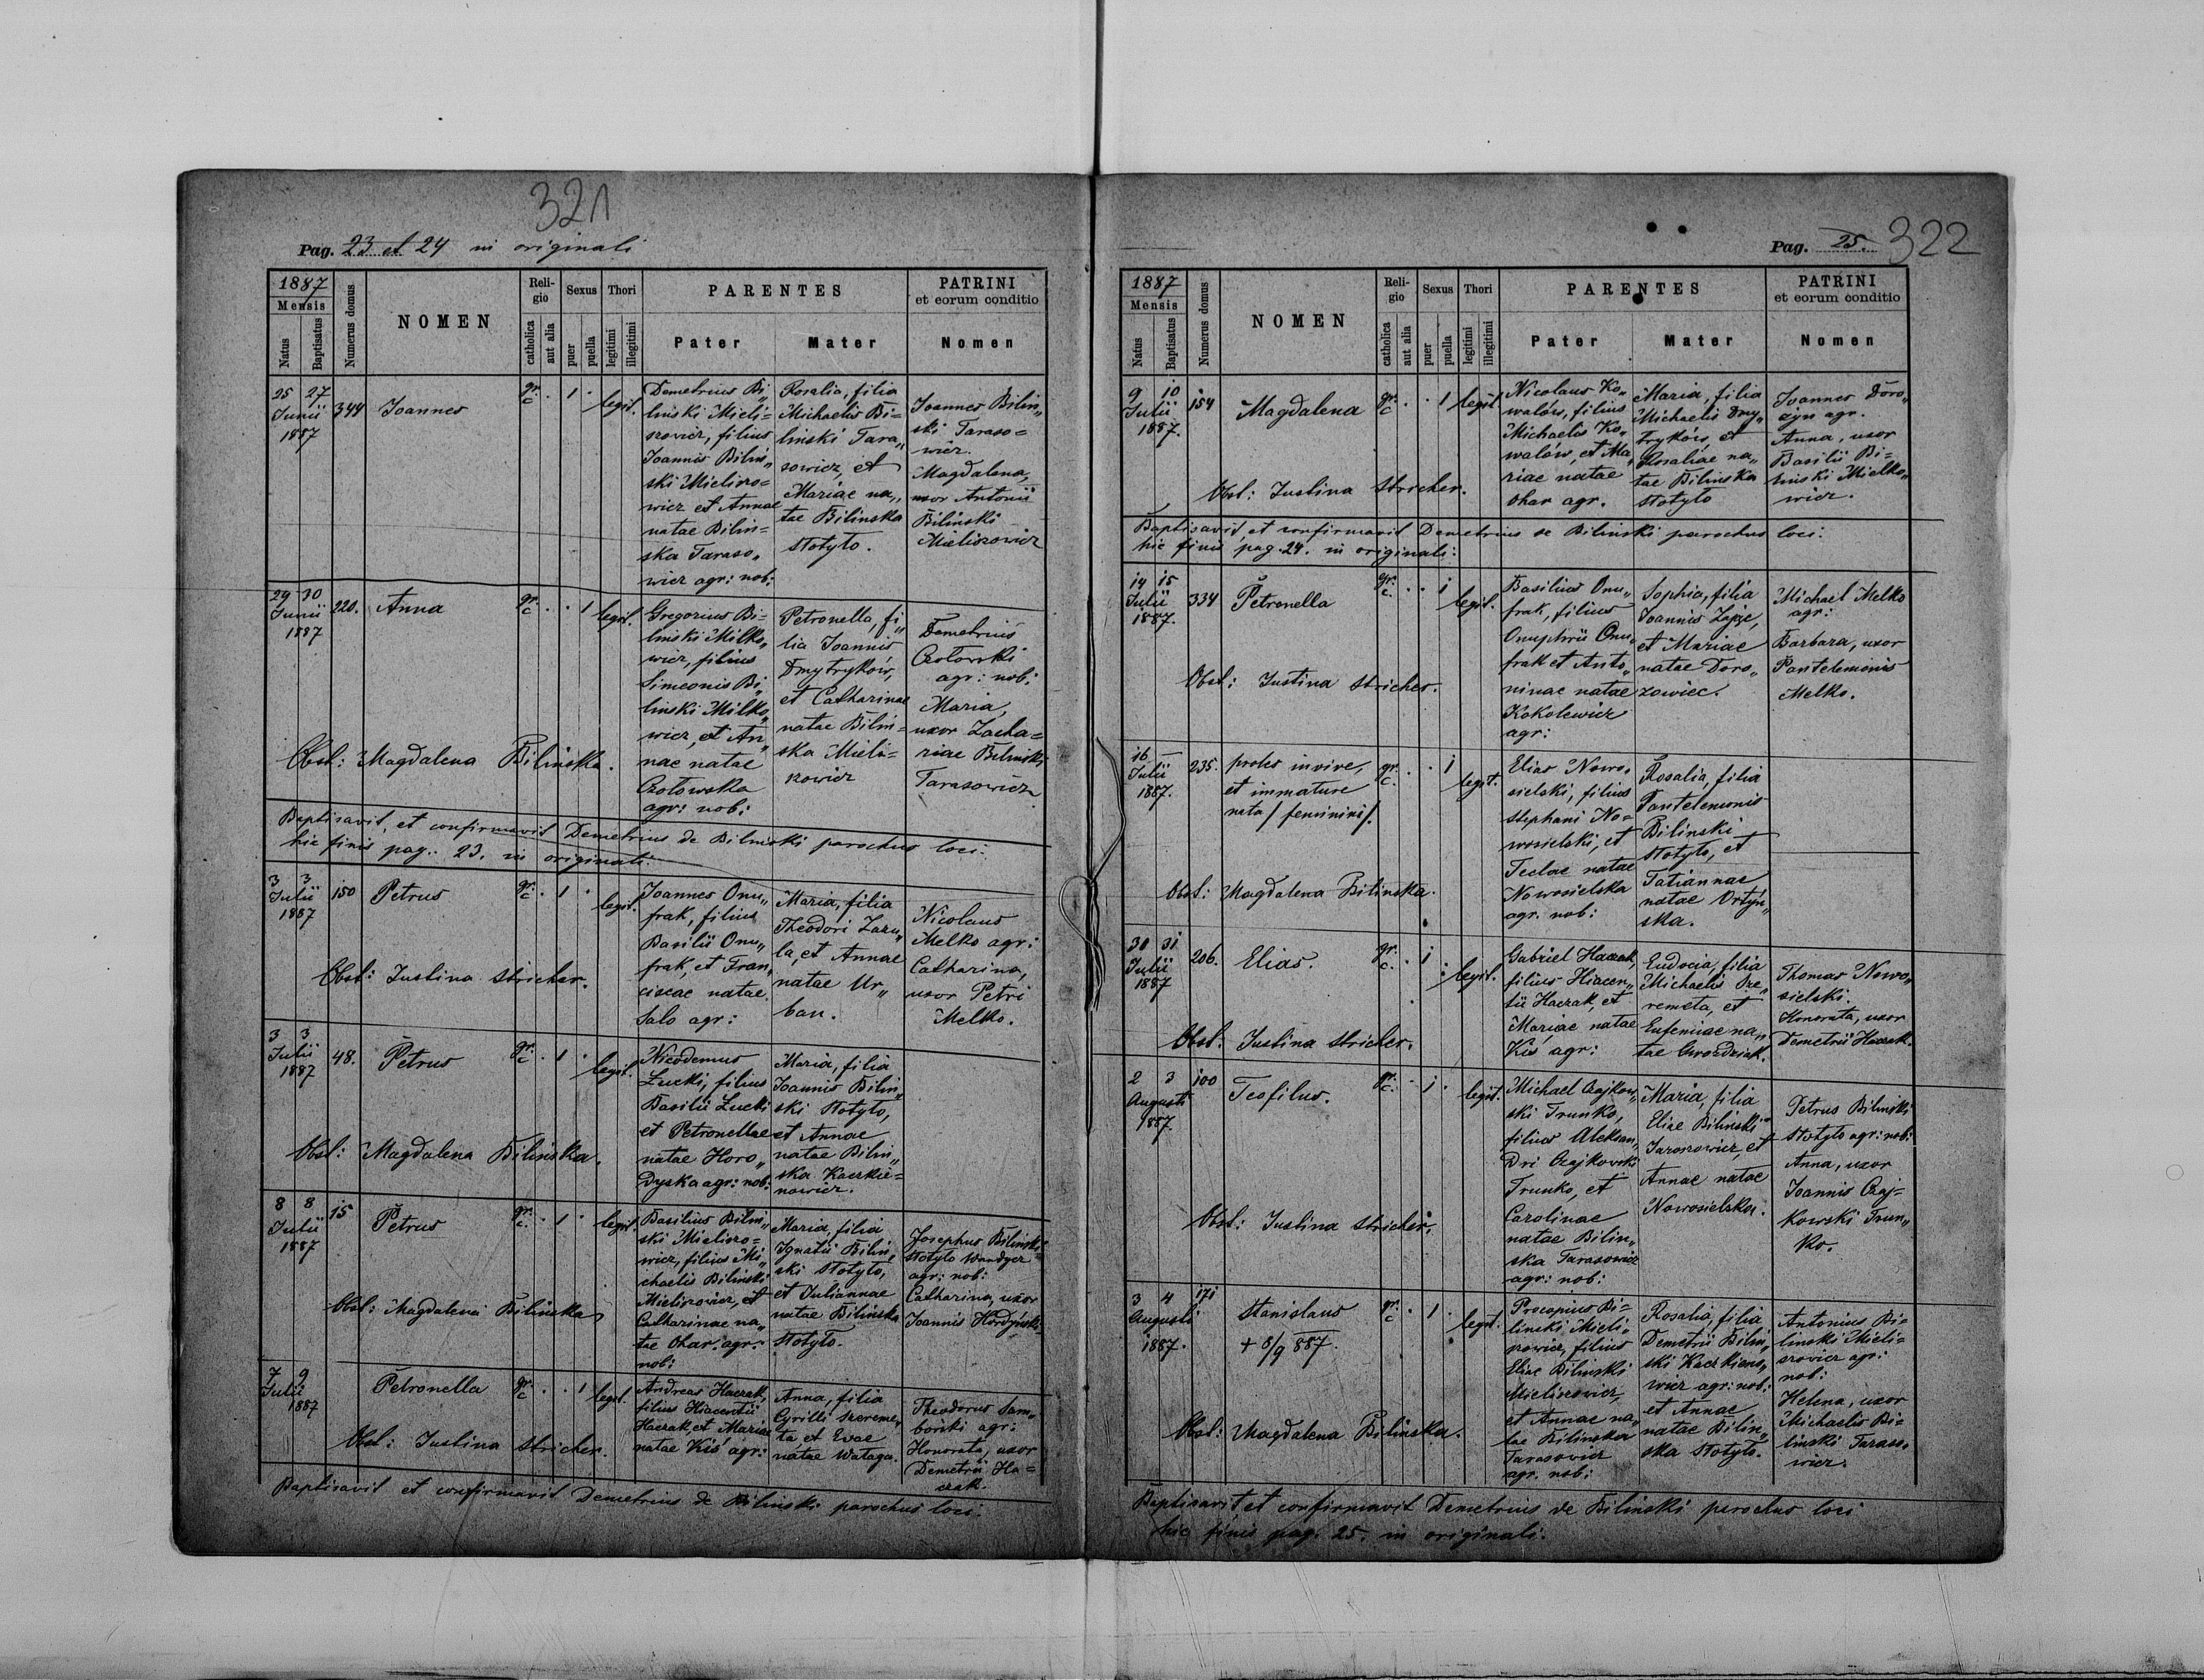 321
Pag. 23 et 24 in originali
1887
Mensis
Natus
Baptisatus
Numerus domus
NOMEN
Reli-
gio
catholica
aut alia
Sexus
puer
puella
Thori
legitimi
illegitimi
PARENTES
Pater
Mater
PATRINI
et eorum conditio
Nomen
25 27
Junii
1887
344
Joannes
gr. c. . 1 . legit.
Demetrius Bi„
linski Mieli=
szowicz, filius
Joannis Bilin„
ski Mieliszo=
wicz et Annae
natae Bilin=
ska Taraso„
wicz agr: nob:
Rosalia, filia
Michaelis Bi=
linski Tara„
sowicz, et
Mariae na„
tae Bilinska
Stotyto.
Joannes Bilin„
ski Taraso=
wicz.
Magdalena,
uxor Antonii
Bilinski
Mieliszowicz
29 30
Junii
1887
220.
Anna
gr. c. . . 1 legit.
Gregorius Bi=
linski Milko„
wicz, filius
Simeonis Bi„
linski Milko„
wicz, et An„
nae natae
Czołowska
agr: nob:
Petronella, fi„
lia Joannis
Dmytryków,
et Catharinae
natae Bilin=
ska Mieli=
szowicz
Demetrius
Czołowski
agr: nob:
Maria,
uxor Zacha=
riae Bilinski
Tarasowicz
Obst: Magdalena Bilinska.
Baptisavit, et confirmavit Demetrius de Bilinski parochus loci.
hic finis pag.: 23. in originali.
3 3
Julii
1887
150
Petrus
gr. c. . 1 . legit.
Joannes Onu„
frak, filius
Basilii Onu„
frak, et Fran„
ciscae natae
Salo agr:
Maria, filia
Theodori Zaru„
la, et Annae
natae Ur„
ban.
Nicolaus
Melko agr:
Catharina,
uxor Petri
Melko.
Obst: Justina Stricher.
3 3
Julii
1887
48.
Petrus
gr. c. . 1 . legit.
Nicodemus
Łucki, filius
Basilii Łucki
et Petronellae
natae Horo„
dyska agr: nob:
Maria, filia
Joannis Bilin„
ski Stotyto,
et Annae
natae Bilin„
ska Kaczkie=
nowicz.
Obst: Magdalena Bilinska.
8 8
Julii
1887
15
Petrus
gr. c. . 1 . legit.
Basilius Bilin„
ski Mieliszo=
wicz, filius Mi„
chaelis Bilinski
Mieliszowicz, et
Catharinae na„
tae Ohar. agr.
nob:
Maria, filia
Ignatii Bilin„
ski Stotyto,
et Juliannae
natae Bilinska
Stotyto.
Josephus Bilinski
Stotyto Wandycz
agr: nob:
Catharina, uxor
Joannis Hordyński
Obst: Magdalena Bilinska
7 9
Julii
1887
Petronella
gr. c. . . 1 legit.
Andreas Haczak,
filius Hiacentii
Haczak, et Mariae
natae Kiś agr:
Anna, filia
Cyrilli Szereme„
ta et Evae
natae Wataga.
Theodorus Sam„
borski agr:
Honorata, uxor
Demetrii Ha=
czak.
Obst: Justina Stricher.
Baptisavit et confirmavit Demetrius de Bilinski parochus loci.
322
Pag. 25.
1887
Mensis
Natus
Baptisatus
Numerus domus
NOMEN
Reli-
gio
catholica
aut alia
Sexus
puer
puella
Thori
legitimi
illegitimi
PARENTES
Pater
Mater
PATRINI
et eorum conditio
Nomen
9 10
Julii
1887.
154
Magdalena
gr. c. . . 1 legit.
Nicolaus Ko„
walów, filius
Michaelis Ko„
walów, et Ma„
riae natae
Ohar agr.
Maria, filia
Michaelis Dmy„
tryków, et
Rosaliae na„
tae Bilinska
Stotyto
Joannes Doro„
agr.
Anna, uxor
Basilii Bi=
linski Mielko„
wicz.
Obst: Justina Stricher.
Baptisavit, et confirmavit Demetrius de Bilinski parochus loci.
hic finis pag. 24. in originali:
14 15
Julii
1887.
334
Petronella
gr. c. . . 1 legit.
Basilius Onu„
frak, filius
Onuphrii Onu„
frak et Anto„
ninae natae
Kokolewicz
agr:
Sophia, filia
Joannis
et Mariae
natae Doro„
zowiec.
Michael Melko
agr:
Barbara, uxor
Pantelemonis
Melko.
Obst: Justina Stricher.
16 —
Julii
1887.
235.
proles invive,
et immature
nata / feminini/.
gr. c. . . 1 legit.
Elias Nowo„
sielski, filius
Stephani No=
wosielski, et
Teclae natae
Nowosielska
agr: nob:
Rosalia, filia
Pantelemonis
Bilinski
Stotyto, et
Tatiannae
natae Ortyń„
ska.
Obst: Magdalena Bilinska.
30 31
Julii
1887
206.
Elias.
gr. c. . 1 . legit.
Gabriel Haczak,
filius Hiacen„
tii Haczak, et
Mariae natae
Kiś agr:
Eudocia, filia
Michaelis Sze„
remeta, et
Eufemiae na„
tae Gwozdziak.
Thomas Nowo„
sielski.
Honorata, uxor
Demetrii Haczak.
Obst: Justina Stricher.
2 3
Augusti
1887.
100
Teofilus.
gr. c. . 1 . legit.
Michael Czajkow„
ski Trunko,
filius Aleksan„
dri Czajkowski
Trunko, et
Carolinae
natae Bilin„
ska Tarasowicz
agr: nob:
Maria, filia
Eliae Bilinski
Jaroszowicz, et
Annae natae
Nowosielska.
Petrus Bilinski
Stotyto agr: nob:
Anna, uxor
Joannis Czaj=
kowski Trun„
ko.
Obst: Justina Stricher.
3 4
Augusti
1887.
171
Stanislaus
+ 8/9 887.
gr. c. . 1 . legit.
Procopius Bi=
linski Mieli„
szowicz, filius
Eliae Bilinski
Mieliszowicz,
et Annae na„
tae Bilinska
Tarasowicz
agr. nob:
Rosalia, filia
Demetrii Bilin„
ski Kaczkieno„
wicz agr: nob:
et Annae
natae Bilin„
ska Stotyto.
Antonius Bi=
linski Mieli=
szowicz agr:
nob:
Helena, uxor
Michaelis Bi=
linski Taraso„
wicz.
Obst: Magdalena Bilinska.
Baptisavit, et confirmavit Demetrius de Bilinski parochus loci
hic finis pag. 25. in originali.